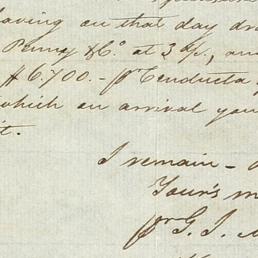 having on that day dr
Penny & Co. at 3 d/p., an
$6,700.- pr Conducta
which on arrival you
it.
I remain -
Your's m
pr G. J.